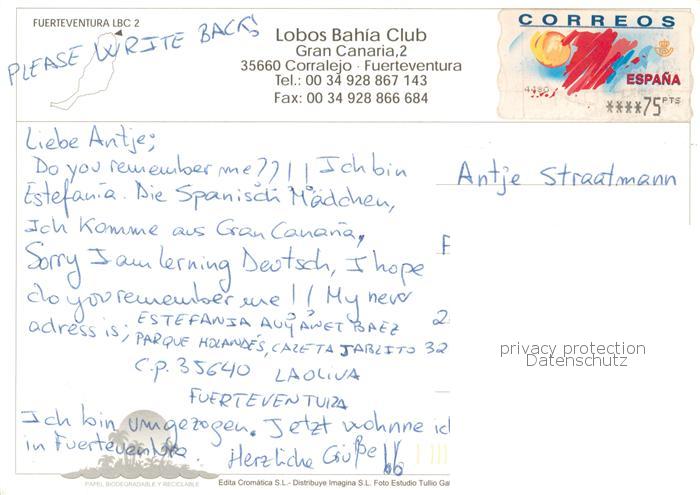 FUERTEVENTURA LBC 2
PLEASE WRITE BACK!
Lobos Bahía Club
Gran Canaria,2
35660 Corralejo · Fuerteventura
Tel.: 00 34 928 867 143
Fax: 00 34 928 866 684
CORREOS
ESPAÑA
4490
****75 PTS
Liebe Antje;
Do you remember me??!! Ich bin
Estefanía. Die Spanisch Mädchen,
Ich Komme aus Gran Canaria,
Sorry I am lerning Deutsch, I hope
do you remember me!! My new
adress is; ESTEFANIA BAEZ
PARQUE HOLANDÉS, TABLITO 32
C.P. 35640 LAOLIVA
FUERTEVENTURA
Ich bin umgezogen. Jetzt wohnne ich
in Fuerteventura. Herzliche Grüße
Antje Straatmann
privacy protection
Datenschutz
PAPEL BIODEGRADABLE Y RECICLABLE
Edita Cromática S.L.- Distribuye Imagina S.L. Foto Estudio Tullio Gat